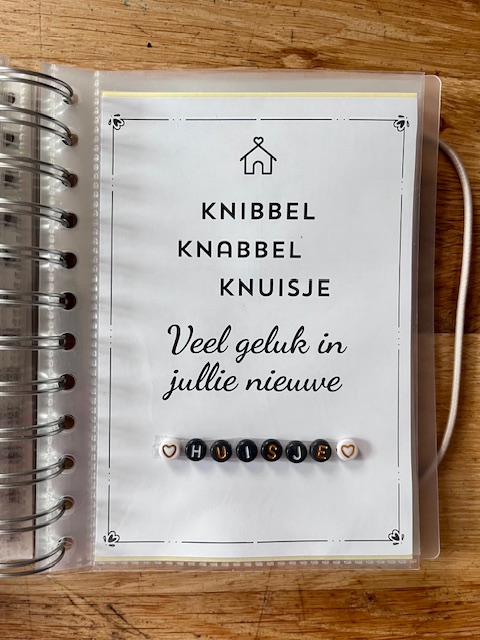 KNIBBEL
KNABBEL
KNUISJE
Veel geluk in
jullie nieuwe
HUISJE